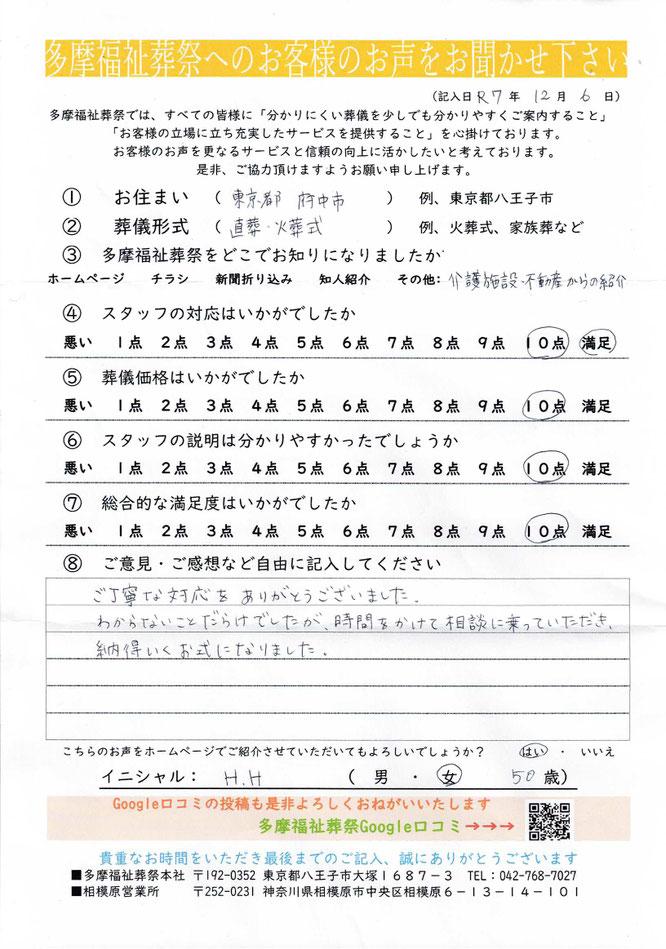 多摩福祉葬祭へのお客様のお声をお聞かせ下さい
（記入日 R7 年 12 月 6 日）
多摩福祉葬祭では、すべての皆様に「分かりにくい葬儀を少しでも分かりやすくご案内すること」
「お客様の立場に立ち充実したサービスを提供すること」を心掛けております。
お客様のお声を更なるサービスと信頼の向上に活かしたいと考えております。
是非、ご協力頂けますようお願い申し上げます。
① お住まい （ 東京都 府中市 ） 例、東京都八王子市
② 葬儀形式 （ 直葬・火葬式 ） 例、火葬式、家族葬など
③ 多摩福祉葬祭をどこでお知りになりましたか
ホームページ チラシ 新聞折り込み 知人紹介 その他：介護施設・不動産からの紹介
④ スタッフの対応はいかがでしたか
悪い 1点 2点 3点 4点 5点 6点 7点 8点 9点 10点 満足
⑤ 葬儀価格はいかがでしたか
悪い 1点 2点 3点 4点 5点 6点 7点 8点 9点 10点 満足
⑥ スタッフの説明は分かりやすかったでしょうか
悪い 1点 2点 3点 4点 5点 6点 7点 8点 9点 10点 満足
⑦ 総合的な満足度はいかがでしたか
悪い 1点 2点 3点 4点 5点 6点 7点 8点 9点 10点 満足
⑧ ご意見・ご感想など自由に記入してください
ご丁寧な対応をありがとうございました。
わからないことだらけでしたが、時間をかけて相談に乗っていただき、
納得いくお式になりました。
こちらのお声をホームページでご紹介させていただいてもよろしいでしょうか？ はい ・ いいえ
イニシャル： H.H （ 男 ・ 女 50 歳）
Google口コミの投稿も是非よろしくおねがいいたします
多摩福祉葬祭Google口コミ→→→
貴重なお時間をいただき最後までのご記入、誠にありがとうございます
■多摩福祉葬祭本社 〒192-0352 東京都八王子市大塚１６８７－３ TEL：042-768-7027
■相模原営業所 〒252-0231 神奈川県相模原市中央区相模原６－１３－１４－１０１